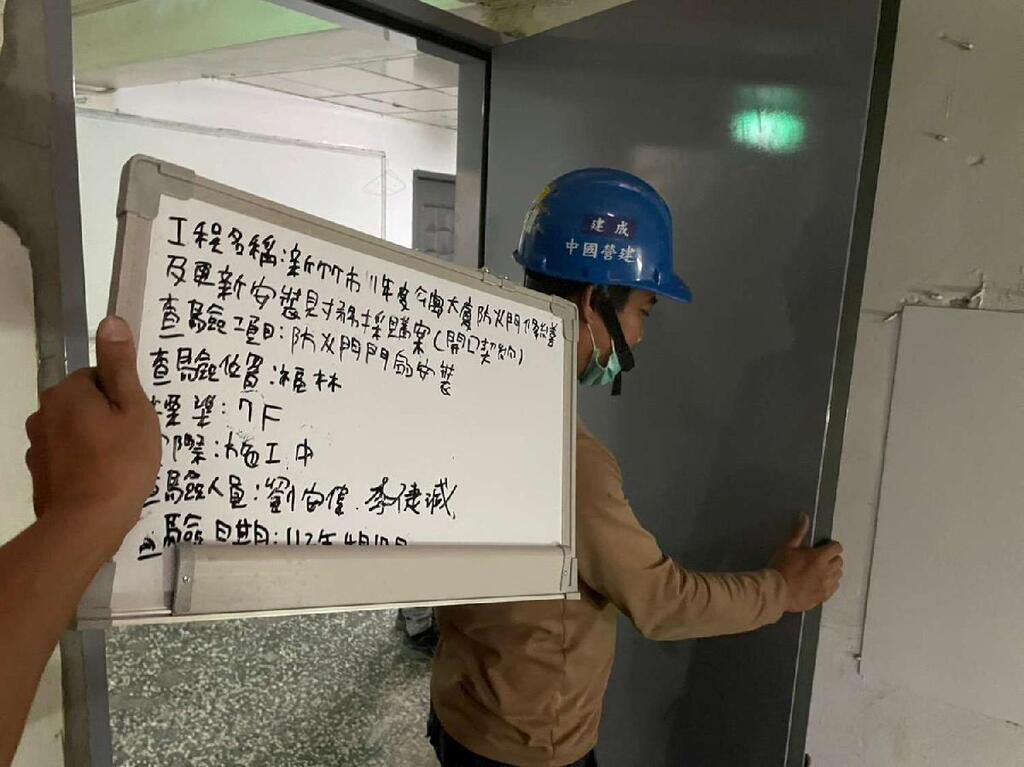 工程名稱:新竹市111年度今海大廈防火門修繕
及更新安裝財務採購案(開口契約)
查驗項目:防火門門扇安裝
查驗位置:福林
標準:7F
實際:施工中
查驗人員:劉安偉.李健誠
查驗日期:112年4月
建成
中國營建